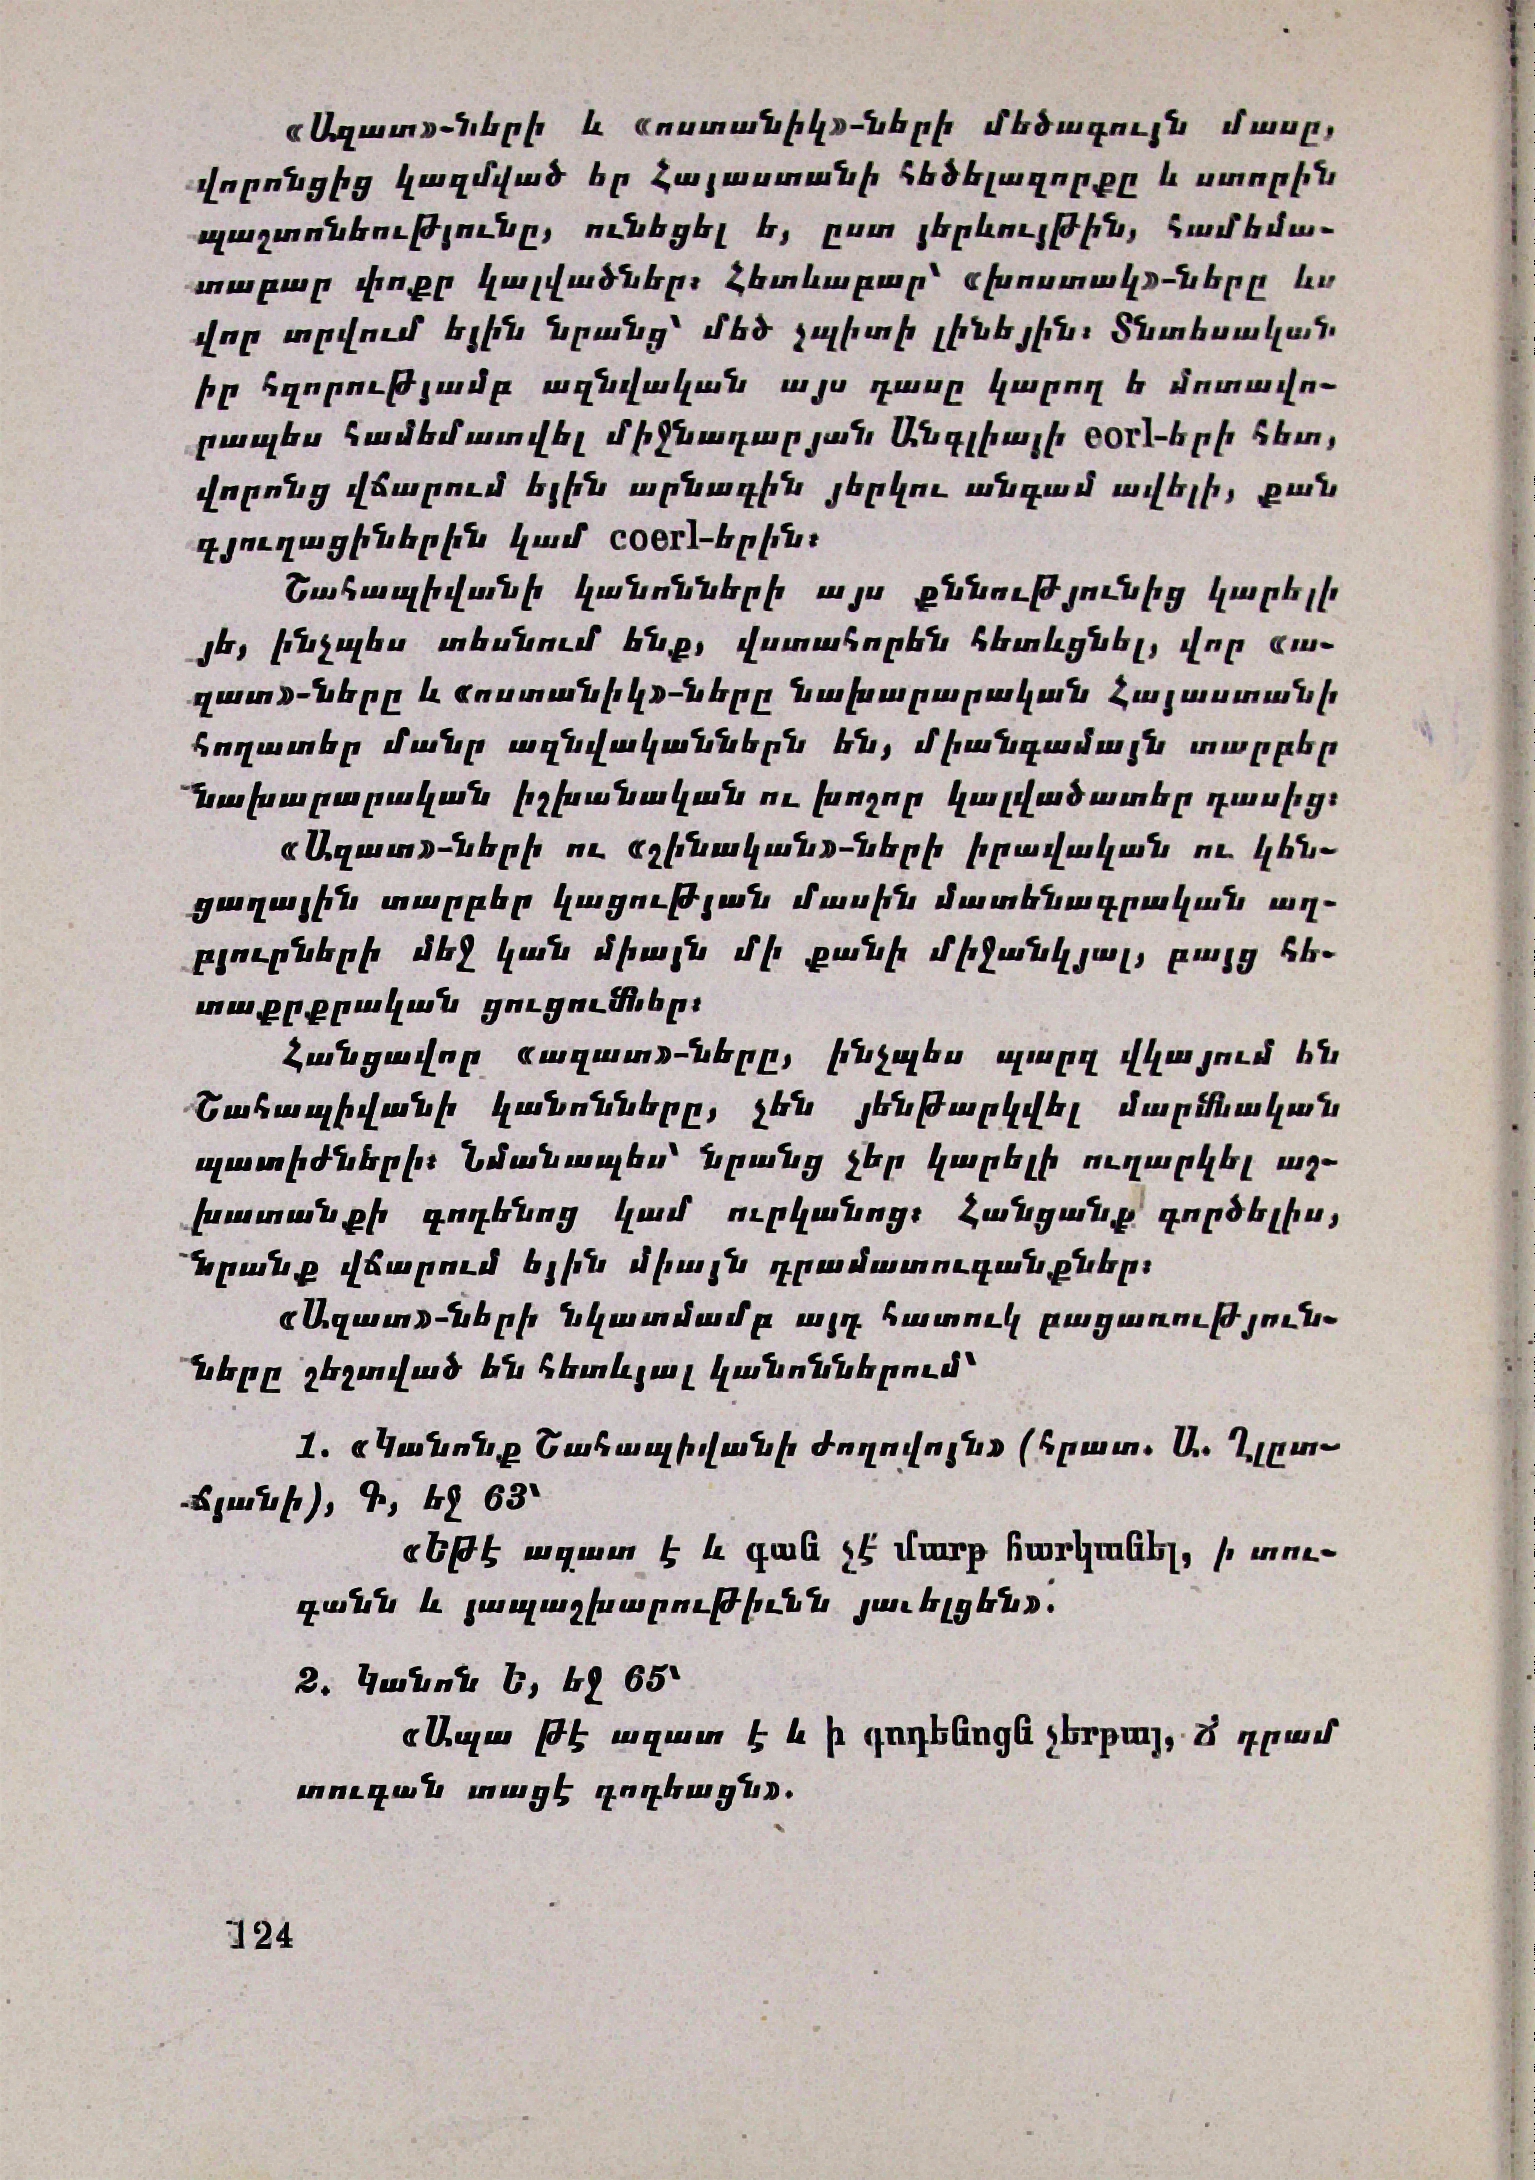 «Ազատ»-ների և «ոստանիկ»-ների մեծագույն մասը,
վորոնցից կազմված եր Հայաստանի հեծելազորքը և ստորին
պաշտոնեությունը, ունեցել ե, ըստ յերևույթին, համեմա-
տաբար փոքր կալվածներ։ Հետևաբար՝ «խոստակ»-ները ևս
վոր տրվում եյին նրանց՝ մեծ չպիտի լինեյին։ Տնտեսական
իր հզորությամբ ազնվական այս դասը կարող ե մոտավո-
րապես համեմատվել միջնադարյան Անգլիայի eorl-երի հետ,
վորոնց վճարում եյին արնագին յերկու անգամ ավելի, քան
գյուղացիներին կամ coerl-երին։
Շահապիվանի կանոնների այս քննությունից կարելի
յե, ինչպես տեսնում ենք, վստահորեն հետևցնել, վոր «ա-
զատ»-ները և «ոստանիկ»-ները նախարարական Հայաստանի
հողատեր մանր ազնվականներն են, միանգամայն տարբեր
նախարարական իշխանական ու խոշոր կալվածատեր դասից։
«Ազատ»-ների ու «շինական»-ների իրավական ու կեն-
ցաղային տարբեր կացության մասին մատենագրական աղ-
բյուրների մեջ կան միայն մի քանի միջանկյալ, բայց հե-
տաքրքրական ցուցումներ։
Հանցավոր «ազատ»-ները, ինչպես պարզ վկայում են
Շահապիվանի կանոնները, չեն յենթարկվել մարմնական
պատիժների։ Նմանապես՝ նրանց չեր կարելի ուղարկել աշ-
խատանքի գոդենոց կամ ուրկանոց։ Հանցանք գործելիս,
նրանք վճարում եյին միայն դրամատուգանքներ։
«Ազատ»-ների նկատմամբ այդ հատուկ բացառություն-
ները շեշտված են հետևյալ կանոններում՝
1. «Կանոնք Շահապիվանի ժողովոյն» (հրատ. Ա. Ղլըտ-
ճյանի), Գ, եջ 63՝
«Եթէ ազատ է և գան չէ մարթ հարկանել, ի տու-
գանն և յապաշխարութիւնն յաւելցեն».
2. Կանոն Ե, եջ 65՝
«Ապա թէ ազատ է և ի գոդենոցն չերթայ, Ճ դրամ
տուգան տացէ գոդեացն».
124